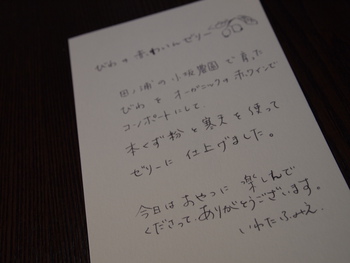 びわの
ゼリー
田ノ浦の小坂農園で育った
びわをオーガニックの白ワインで
コンポートにして、
本くず粉と寒天を使って
ゼリーに仕上げました。
今日はおやつに楽しんで
くださって、ありがとうございます。
いわた